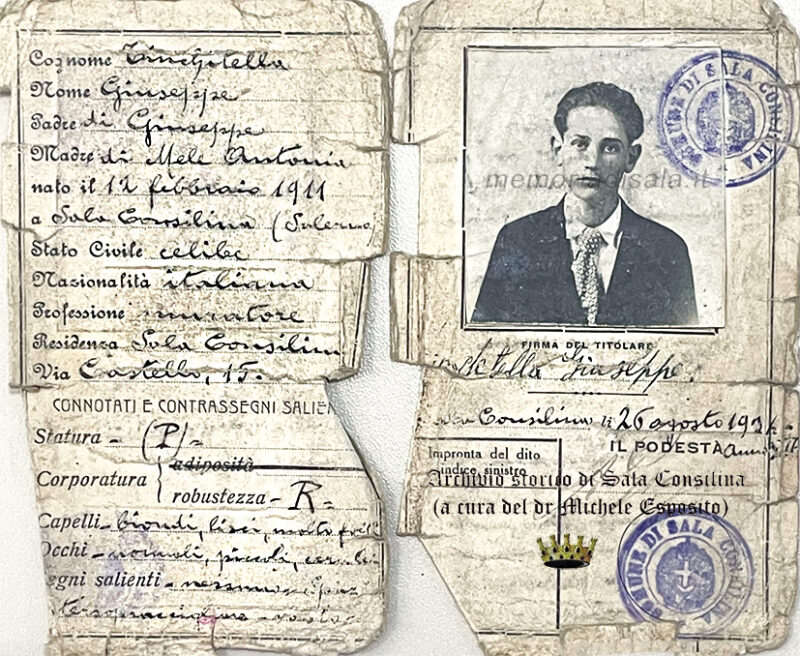 Cognome Tinchitella
Nome Giuseppe
Padre di Giuseppe
Madre di Mele Antonia
nato il 12 febbraio 1911
a Sala Consilina (Salerno)
Stato Civile celibe
Nazionalità italiana
Professione muratore
Residenza Sala Consilina
Via Castello, 15.
CONNOTATI E CONTRASSEGNI SALIEN
Statura - (P) =
Corporatura
adiposità
robustezza - R -
Capelli - biondi, lisci, molto
Occhi - normali, piccoli,
egni salienti - nessuno
COMUNE DI SALA CONSILINA
memoriadisala.it
FIRMA DEL TITOLARE
Giuseppe
Consilina li 26 agosto 193
IL PODESTÀ
Impronta del dito
indice sinistro
Archivio storico di Sala Consilina
(a cura del dr Michele Esposito)
COMUNE DI SALA CONSILINA